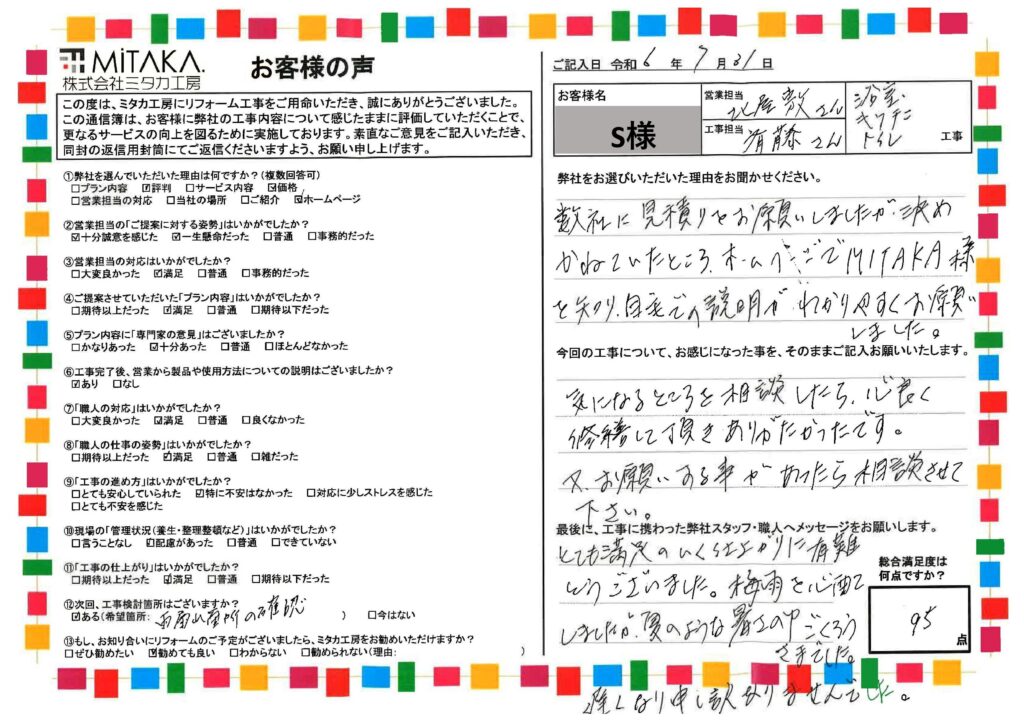 MiTAKA.
株式会社ミタカ工房
お客様の声
この度は、ミタカ工房にリフォーム工事をご用命いただき、誠にありがとうございました。
この通信簿は、お客様に弊社の工事内容について感じたままに評価していただくことで、
更なるサービスの向上を図るために実施しております。素直なご意見をご記入いただき、
同封の返信用封筒にてご返信くださいますよう、お願い申し上げます。
①弊社を選んでいただいた理由は何ですか?(複数回答可)
□プラン内容 ☑評判 □サービス内容 ☑価格
□営業担当の対応 □当社の場所 □ご紹介 ☑ホームページ
②営業担当の「ご提案に対する姿勢」はいかがでしたか?
☑十分誠意を感じた ☑一生懸命だった □普通 □事務的だった
③営業担当の対応はいかがでしたか?
□大変良かった ☑満足 □普通 □事務的だった
④ご提案させていただいた「プラン内容」はいかがでしたか?
□期待以上だった ☑満足 □普通 □期待以下だった
⑤プラン内容に「専門家の意見」はございましたか?
□かなりあった ☑十分あった □普通 □ほとんどなかった
⑥工事完了後、営業から製品や使用方法についての説明はございましたか?
☑あり □なし
⑦「職人の対応」はいかがでしたか?
□大変良かった ☑満足 □普通 □良くなかった
⑧「職人の仕事の姿勢」はいかがでしたか?
□期待以上だった ☑満足 □普通 □雑だった
⑨「工事の進め方」はいかがでしたか?
□とても安心していられた ☑特に不安はなかった □対応に少しストレスを感じた
□とても不安を感じた
⑩現場の「管理状況(養生・整理整頓など)」はいかがでしたか?
□言うことなし ☑配慮があった □普通 □できていない
⑪「工事の仕上がり」はいかがでしたか?
□期待以上だった ☑満足 □普通 □期待以下だった
⑫次回、工事検討箇所はございますか?
☑ある(希望箇所: の確認 ) □今はない
⑬もし、お知り合いにリフォームのご予定がございましたら、ミタカ工房をお勧めいただけますか?
□ぜひ勧めたい ☑勧めても良い □わからない □勧められない(理由: )
ご記入日 令和 6 年 7 月 31 日
お客様名
S様
営業担当 北屋敷さん
工事担当 斉藤さん
浴室
キッチン
トイレ
工事
弊社をお選びいただいた理由をお聞かせください。
数社に見積りをお願いしましたが、決め
かねていたところ、ホームページでMITAKA様
を知り、自宅での説明がわかりやすくお願い
しました。
今回の工事について、お感じになった事を、そのままご記入お願いいたします。
気になるところを相談したら、心良く
修繕して頂きありがたかったです。
又、お願いする事があったら相談させて
下さい。
最後に、工事に携わった弊社スタッフ・職人へメッセージをお願いします。
とても満足のいく仕上がりに有難
うございました。梅雨を心配
しましたが、夏のような暑さの中ごくろう
さまでした。
遅くなり申し訳ありませんでした。
総合満足度は
何点ですか?
95
点